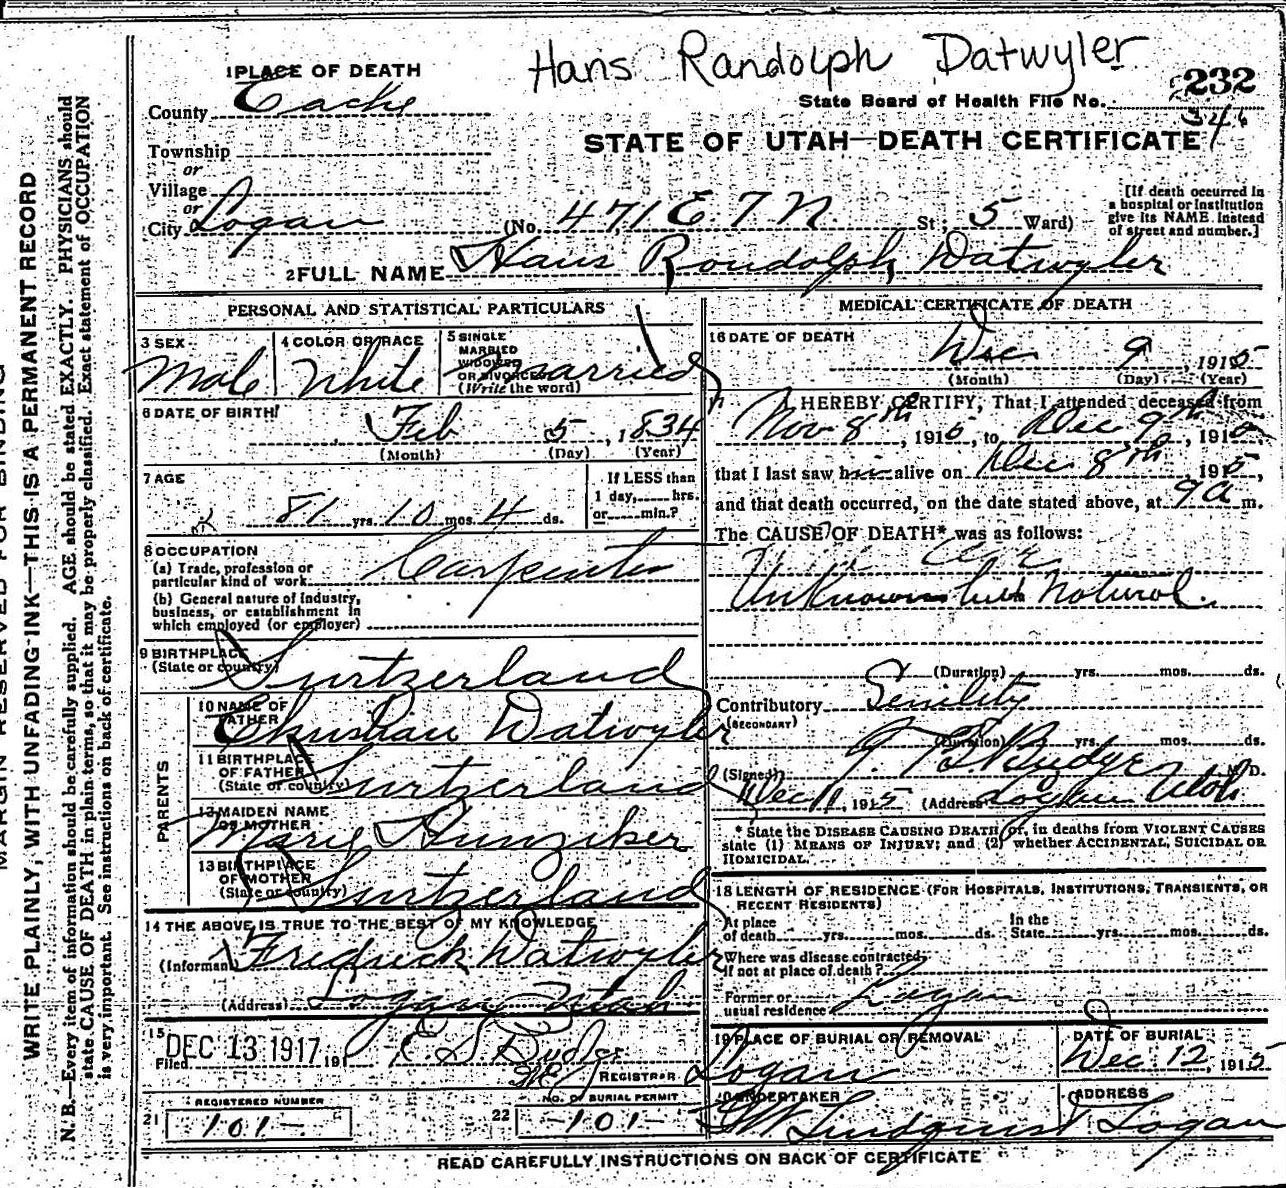 Hans Randolph Datwyler
1 PLACE OF DEATH
232
County Cache
State Board of Health File No.
346
Township
STATE OF UTAH—DEATH CERTIFICATE
or
Village
or
City Logan (No. 471 E 7 N. St; 5 Ward)
[If death occurred in
a hospital or institution
give its NAME instead
of street and number.]
2 FULL NAME Hans Roudolph Datwyler
PERSONAL AND STATISTICAL PARTICULARS
3 SEX
Male
4 COLOR OR RACE
White
5 SINGLE
MARRIED
WIDOWED
OR DIVORCED
(Write the word)
Married
6 DATE OF BIRTH
Feb 5, 1834
(Month) (Day) (Year)
7 AGE
81 yrs. 10 mos. 4 ds.
If LESS than
1 day, hrs.
or min.?
8 OCCUPATION
(a) Trade, profession or
particular kind of work Carpenter
(b) General nature of industry,
business, or establishment in
which employed (or employer)
9 BIRTHPLACE
(State or country) Surtzerland
PARENTS
10 NAME OF
FATHER
Christian Datwyler
11 BIRTHPLACE
OF FATHER
(State or country) Surtzerland
12 MAIDEN NAME
OF MOTHER
Marie Hunziker
13 BIRTHPLACE
OF MOTHER
(State or country) Surtzerland
14 THE ABOVE IS TRUE TO THE BEST OF MY KNOWLEDGE
(Informant) Fredrick Datwyler
(Address) Logan Utah
15
Filed DEC 13 1917 191
REGISTRAR
REGISTERED NUMBER
21 101-
NO. OF BURIAL PERMIT
22 -101-
MEDICAL CERTIFICATE OF DEATH
16 DATE OF DEATH
Dec 9, 1915
(Month) (Day) (Year)
17 I HEREBY CERTIFY, That I attended deceased from
Nov 8th, 1915, to Dec 9th, 1915,
that I last saw him alive on Dec 8th, 1915,
and that death occurred, on the date stated above, at 9 a m.
The CAUSE OF DEATH* was as follows:
Unknown but Natural.
(Duration) yrs. mos. ds.
Contributory Senility
(SECONDARY)
(Duration) yrs. mos. ds.
(Signed) Budge M. D.
Dec 11, 1915 (Address) Logan Utah
* State the DISEASE CAUSING DEATH, or, in deaths from VIOLENT CAUSES
state (1) MEANS OF INJURY; and (2) whether ACCIDENTAL, SUICIDAL OR
HOMICIDAL.
18 LENGTH OF RESIDENCE (FOR HOSPITALS, INSTITUTIONS, TRANSIENTS, OR
RECENT RESIDENTS)
At place
of death yrs. mos. ds.
In the
State yrs. mos. ds.
Where was disease contracted,
if not at place of death?
Former or
usual residence Logan
19 PLACE OF BURIAL OR REMOVAL
Logan
DATE OF BURIAL
Dec 12, 1915
20 UNDERTAKER
Lindquist
ADDRESS
Logan
READ CAREFULLY INSTRUCTIONS ON BACK OF CERTIFICATE
MARGIN RESERVED FOR BINDING
WRITE PLAINLY, WITH UNFADING INK—THIS IS A PERMANENT RECORD
N. B.—Every item of information should be carefully supplied. AGE should be stated EXACTLY. PHYSICIANS should
state CAUSE OF DEATH in plain terms, so that it may be properly classified. Exact statement of OCCUPATION
is very important. See instructions on back of certificate.